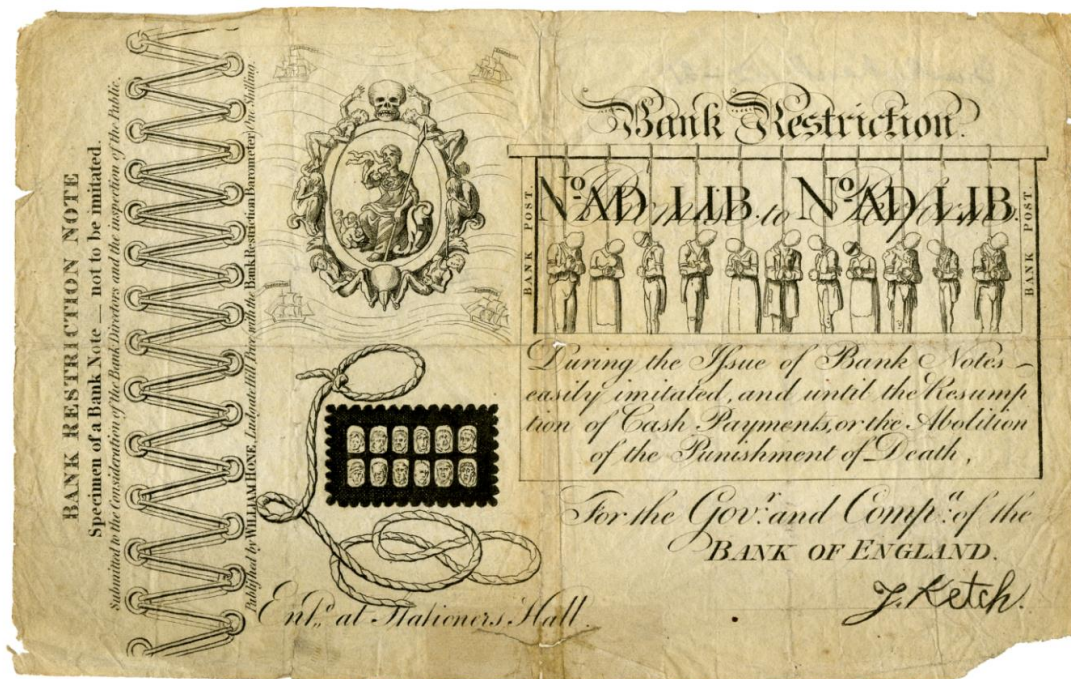 BANK RESTRICTION NOTE
Specimen of a Bank Note — not to be imitated.
Submitted to the Consideration of the Bank Directors and the inspection of the Public.
Published by WILLIAM HONE, Ludgate Hill Price with the Bank Restriction Barometer One Shilling.
Bank Restriction.
BANK POST
No. AD LIB. No. AD LIB.
BANK POST
During the Issue of Bank Notes –
easily imitated, and until the Resump
tion of Cash Payments, or the Abolition
of the Punishment of Death,
For the Govr. and Compa. of the
BANK OF ENGLAND.
J. Ketch.
Entd. at Stationers Hall.